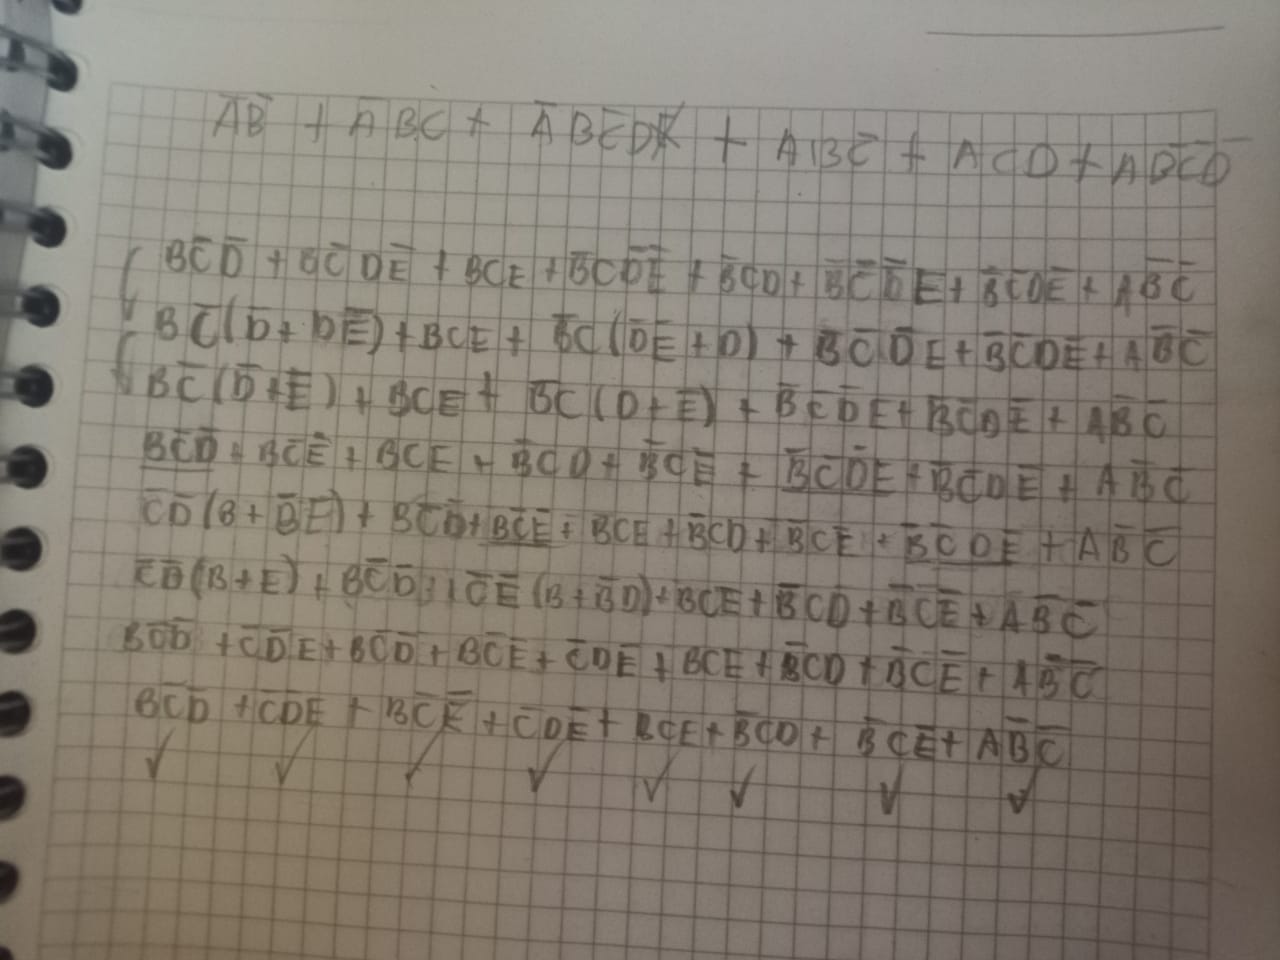 A̅B̅ + A̅BC + A̅BC̅D + ABC̅ + ACD + AB̅C̅D̅
BC̅D̅ + BC̅DE̅ + BCE + B̅CD̅E̅ + B̅CD + B̅C̅D̅E + B̅C̅DE̅ + AB̅C̅
BC̅(D̅ + DE̅) + BCE + B̅C(D̅E̅ + D) + B̅C̅D̅E + B̅C̅DE̅ + AB̅C̅
BC̅(D̅ + E̅) + BCE + B̅C(D + E̅) + B̅C̅D̅E + B̅C̅DE̅ + AB̅C̅
BC̅D̅ + BC̅E̅ + BCE + B̅CD + B̅CE̅ + B̅C̅D̅E + B̅C̅DE̅ + AB̅C̅
C̅D̅(B + B̅E) + BC̅D̅ + BC̅E̅ + BCE + B̅CD + B̅CE̅ + B̅C̅DE̅ + AB̅C̅
C̅D̅(B + E) + BC̅D̅ + C̅E̅(B + B̅D) + BCE + B̅CD + B̅CE̅ + AB̅C̅
BC̅D̅ + C̅D̅E + BC̅D̅ + BC̅E̅ + C̅DE̅ + BCE + B̅CD + B̅CE̅ + AB̅C̅
BC̅D̅ + C̅D̅E + BC̅E̅ + C̅DE̅ + BCE + B̅CD + B̅CE̅ + AB̅C̅